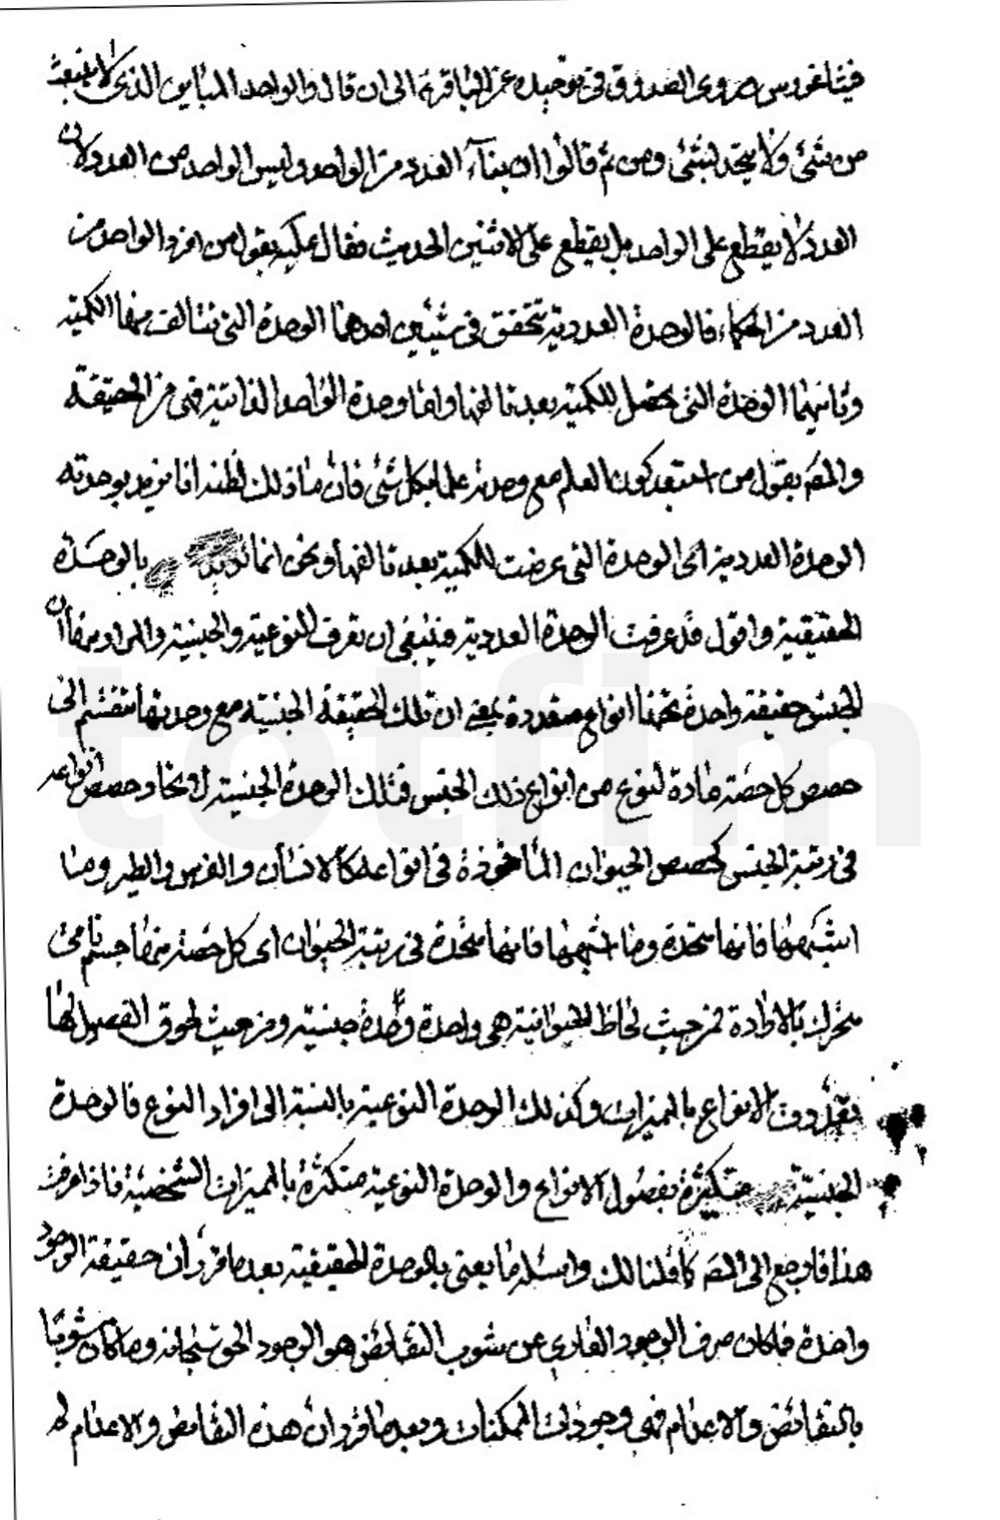 فيثاغورس وروى الصدوق في توحيده عن الباقر ع الى ان قال والواحد المباين الذي لا ينبعث
من شئ ولا يتحد بشئ ومن ثم قالوا ان بناء العدد من الواحد وليس الواحد من العدد لان
العدد لا يقع على الواحد بل يقع على الاثنين الحديث فقال عليه بقوا من افرد الواحد من
العدد من الحكماء فالوحدة العددية تتحقق في شيئين احدهما الوحدة التي تتالف منها الكمية
وثانيهما الوحدة التي تحصل للكمية بعد تالفها واما وحدة الواحد الذاتية فهي من الحقيقة
والمص يقول من استبعد كون العلم مع وحدته علما بكل شئ فان ما ذلك لظنه انا نريد بوحدته
الوحدة العددية اى الوحدة التي عرضت للكمية بعد تالفها ونحن انما نريد بالوحدة
الحقيقية واقول قد عرفت الوحدة العددية فينبغي ان تعرف النوعية والجنسية والمراد منها ان
للجنس حقيقة واحدة تحتها انواع متعددة بمعنى ان تلك الحقيقة الجنسية مع وحدتها تنقسم الى
حصص كل حصة مادة لنوع من انواع ذلك الجنس فتلك الوحدة الجنسية لاتحاد حصص انواعه
في رتبة الجنس كحصص الحيوان الماخوذة في انواعه كالانسان والفرس والطير وما
اشبهها فانها متحدة وما اشبهها فانها متحدة في رتبة الحيوان اى كل حصة منها جسم نامى
متحرك بالارادة فمن حيث لحاظ الحيوانية هى واحدة وحدة جنسية ومن حيث لحوق الفصول لها
تعددت الانواع بالمميزات وكذلك الوحدة النوعية بالنسبة الى افراد النوع فالوحدة
الجنسية متكثرة بفصول الانواع والوحدة النوعية متكثرة بالمميزات الشخصية فاذا عرفت
هذا فارجع الى المص كما قلنا لك واسئله ما يعنى بالوحدة الحقيقية بعد ما قرر ان حقيقة الوجود
واحدة فما كان صرف الوجود العارى عن شوب النقايص هو الوجود الحق سبحانه وما كان مشوبا
بالنقائص والاعدام فهى وجودات الممكنات وبعد ما قرر ان هذه النقايص والاعدام له
totfim